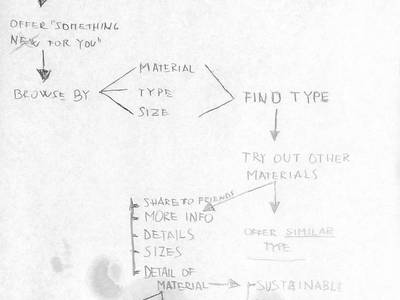 OFFER "SOMETHING
NEW FOR YOU"
BROWSE BY
MATERIAL
TYPE
SIZE
FIND TYPE
TRY OUT OTHER
MATERIALS
SHARE TO FRIENDS
MORE INFO
DETAILS
SIZES
DETAIL OF
MATERIAL
OFFER SIMILAR
TYPE
SUSTAINABLE